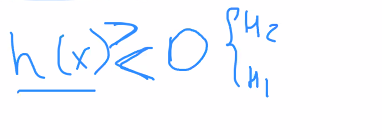 h(x) ≷ 0 { H2
H1